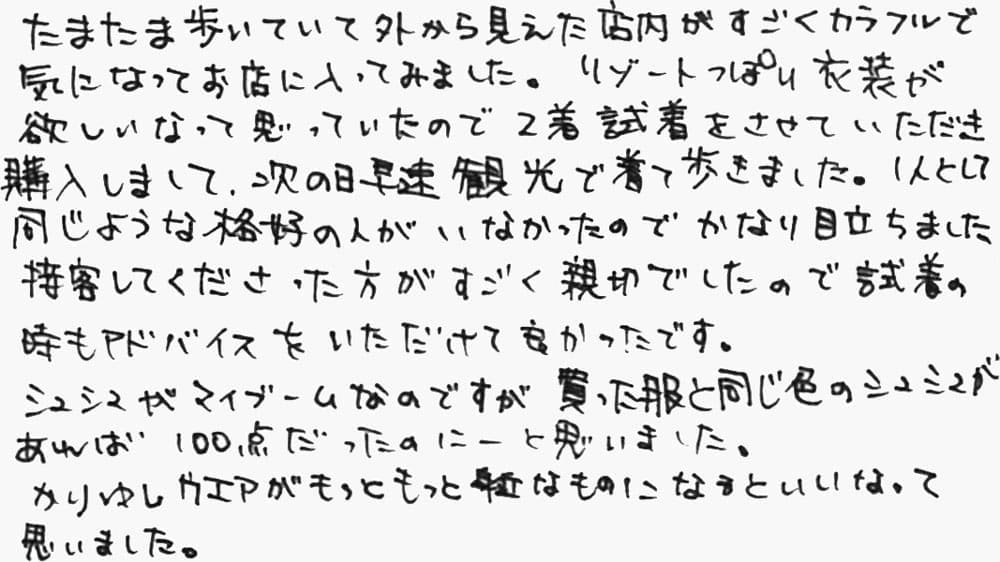 たまたま歩いていて外から見えた店内がすごくカラフルで
気になってお店に入ってみました。リゾートっぽい衣装が
欲しいなって思っていたので2着試着をさせていただき
購入しまして、次の日早速観光で着て歩きました。1人として
同じような格好の人がいなかったのでかなり目立ちました
接客してくださった方がすごく親切でしたので試着の
時もアドバイスをいただけて良かったです。
シュシュがマイブームなのですが買った服と同じ色のシュシュが
あれば100点だったのにーと思いました。
かりゆしウエアがもっともっと身近なものになるといいなって
思いました。